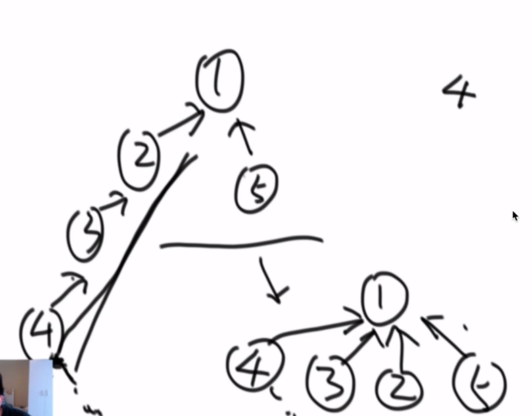 1
4
2
5
3
4
1
4
3
2
5